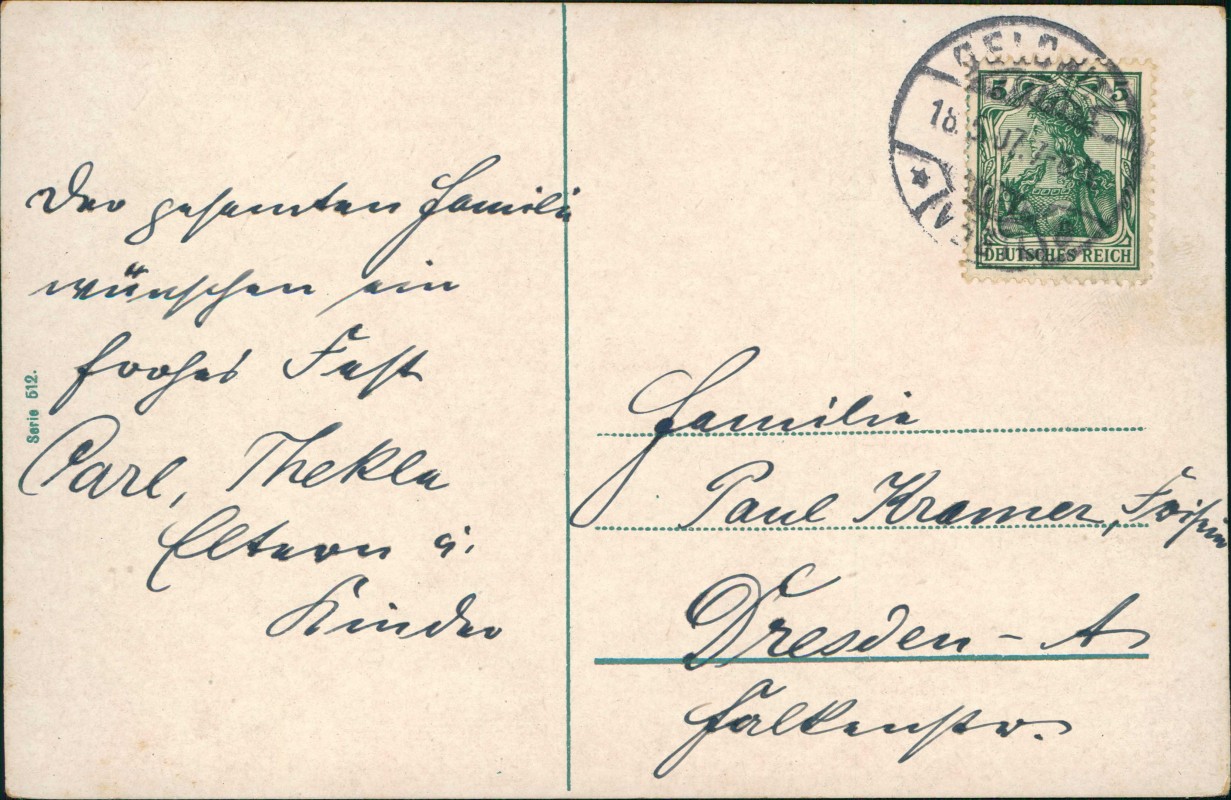 Der gesamten Familie
wünschen ein
frohes Fest
Carl, Thekla
Eltern u.
Kinder
Serie 512.
5 5
DEUTSCHES REICH
18.5.07.
Familie
Paul Kramer,
Dresden-A
Falkenstr.